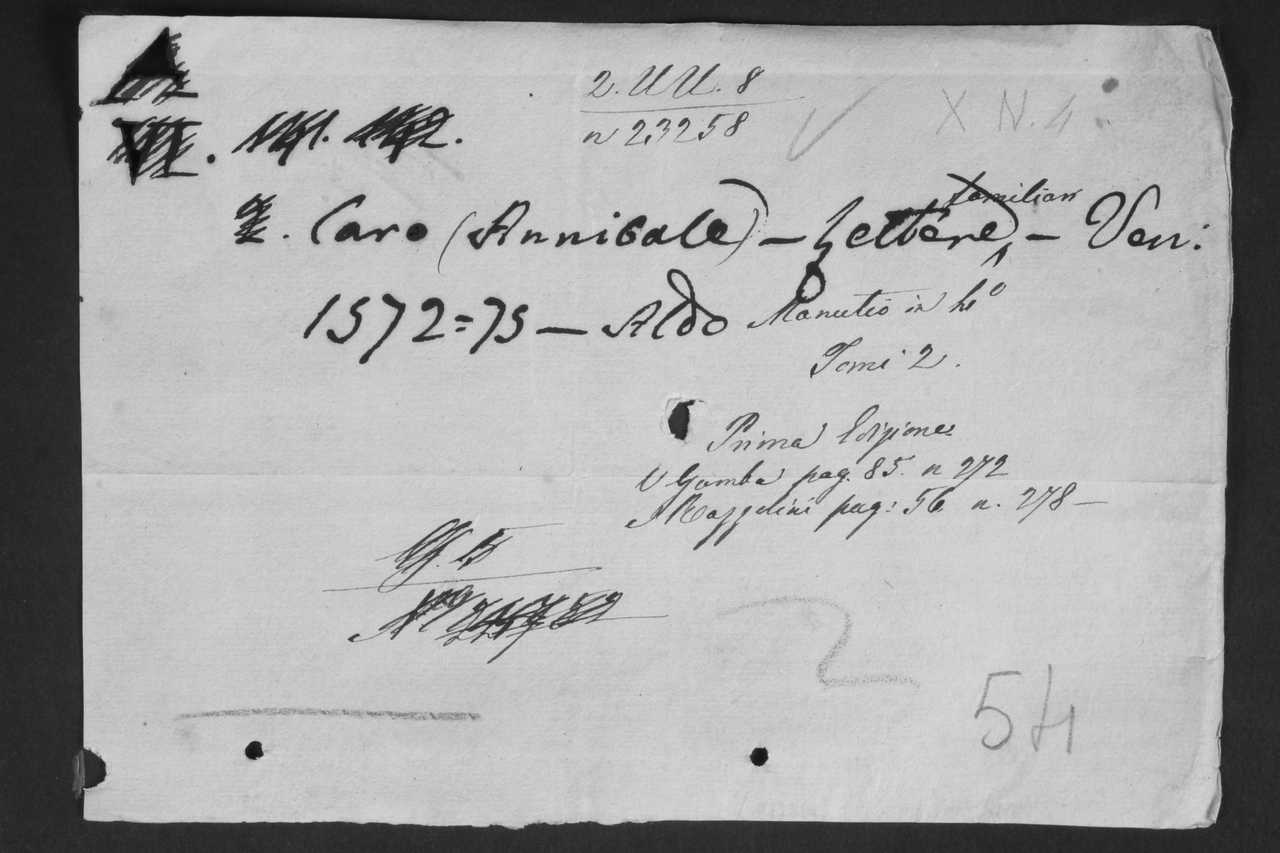 2. U U. 8
n 23258
X N. 4
141. 142.
Caro (Annibale) — Lettere familiari — Ven:
1572=75 — Aldo Manutio in 4º
Tomi 2.
Prima Edizione
V Gamba pag. 85. n 272
Razzolini pag: 56 n. 278 —
Nº
2
54